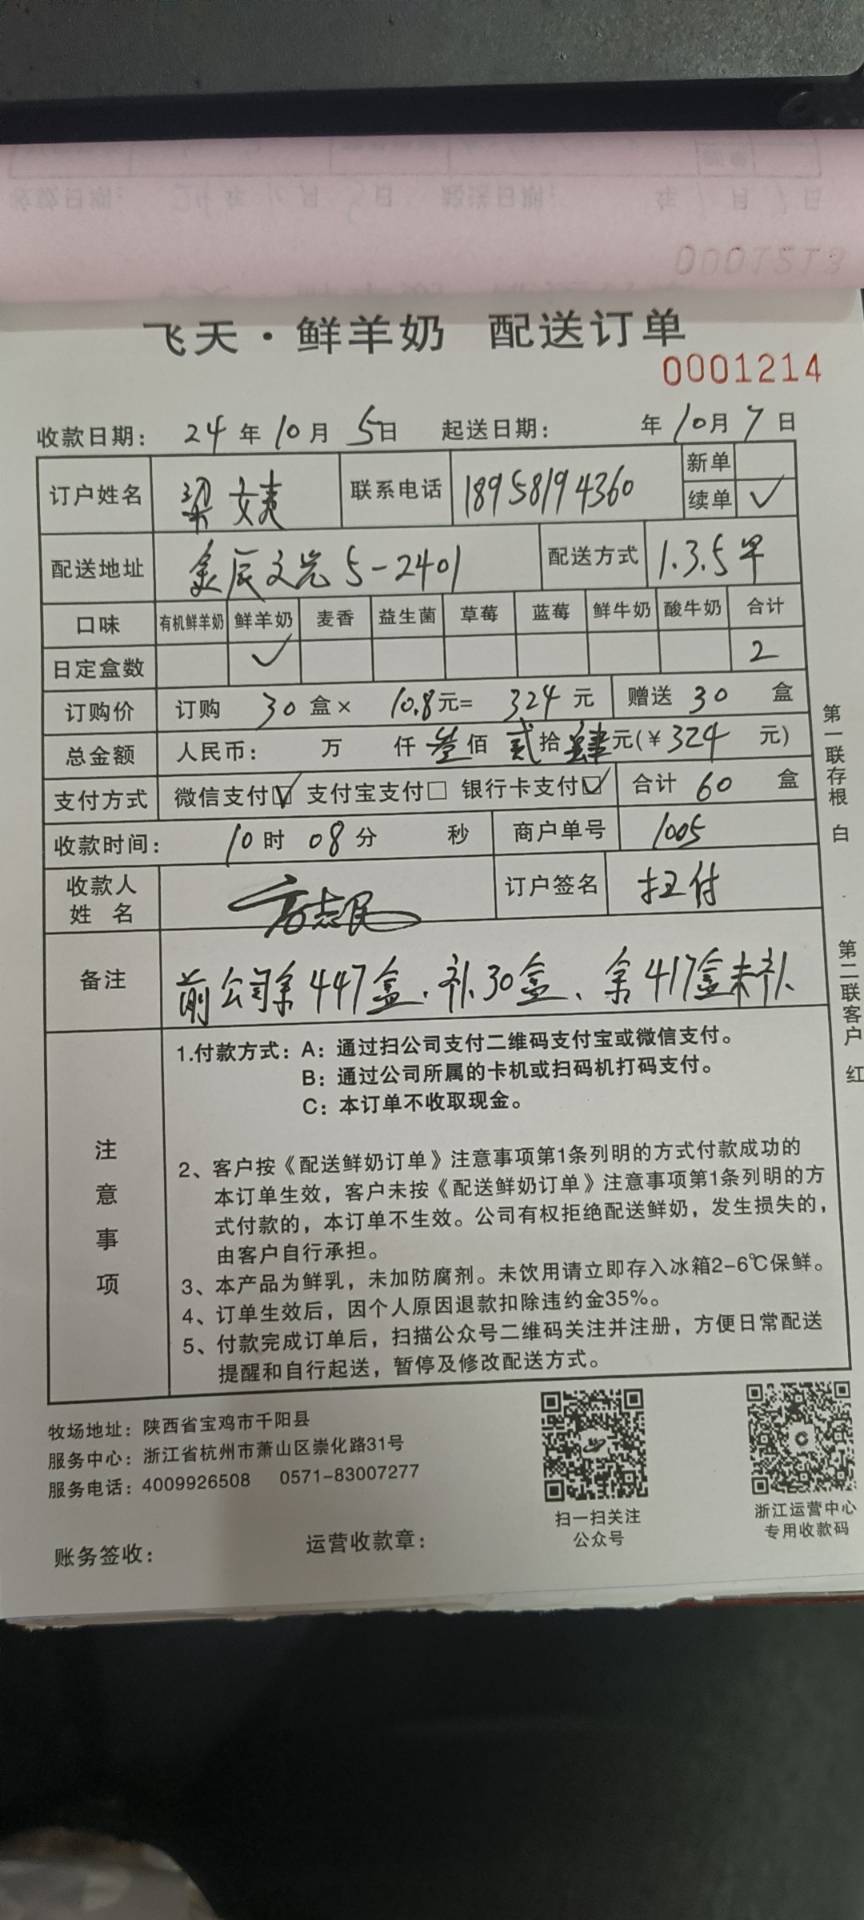 飞天·鲜羊奶 配送订单
0001214
收款日期: 24年10月5日 起送日期: 年10月7日
订户姓名 梁 联系电话 18958194360 新单
续单 ✓
配送地址 辰文 5-2401 配送方式 1.3.5早
口味 有机鲜羊奶 鲜羊奶 麦香 益生菌 草莓 蓝莓 鲜牛奶 酸牛奶 合计
日定盒数 ✓ 2
订购价 订购 30 盒× 10.8元= 324 元 赠送 30 盒
总金额 人民币: 万 仟 叁佰 贰拾肆元(¥324 元)
支付方式 微信支付☑ 支付宝支付□ 银行卡支付☑ 合计 60 盒
收款时间: 10时 08分 秒 商户单号 1005
收款人
姓 名 志民 订户签名 扫付
备注 前公司余447盒、补30盒、余417盒未补
注意事项
1.付款方式: A: 通过扫公司支付二维码支付宝或微信支付。
B: 通过公司所属的卡机或扫码机打码支付。
C: 本订单不收取现金。
2、客户按《配送鲜奶订单》注意事项第1条列明的方式付款成功的
本订单生效，客户未按《配送鲜奶订单》注意事项第1条列明的方
式付款的，本订单不生效。公司有权拒绝配送鲜奶，发生损失的，
由客户自行承担。
3、本产品为鲜乳，未加防腐剂。未饮用请立即存入冰箱2-6℃保鲜。
4、订单生效后，因个人原因退款扣除违约金35%。
5、付款完成订单后，扫描公众号二维码关注并注册，方便日常配送
提醒和自行起送，暂停及修改配送方式。
第一联存根 白
第二联客户 红
牧场地址: 陕西省宝鸡市千阳县
服务中心: 浙江省杭州市萧山区崇化路31号
服务电话: 4009926508 0571-83007277
扫一扫关注
公众号
浙江运营中心
专用收款码
账务签收:
运营收款章: